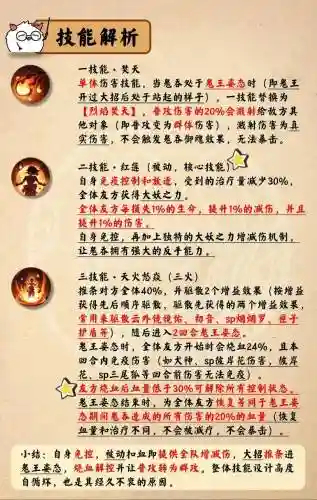 技能解析
一技能·焚天
单体伤害技能，当鬼吞处于鬼王姿态时（即鬼王
开过大招后处于站起的样子），一技能替换为
【烈焰焚天】，普攻伤害的20%会溅射给敌方其
他对象（即普攻变为群体伤害），溅射伤害为真
实伤害，不会触发鬼吞御魂效果，无法暴击。
二技能·红莲（被动，核心技能）
自身免疫控制和嘲讽，受到的治疗量减少30%，
全体友方获得大妖之力。
全体友方每损失1%的生命，提升1%的减伤，并且
提升1%的伤害。
自身免控，再加上独特的大妖之力增减伤机制，
让鬼吞拥有强大的反手能力。
三技能·天火怒焱（三火）
推条对方全体40%，并驱散2个增益效果（按增益
获得先后顺序驱散，驱散先获得的两个增益效果，
常用来驱散云外镜镜佑、初音、sp烟烟罗、匣子
护盾等），随后进入2回合鬼王姿态。
鬼王姿态时，全体友方开始时会烧血24%，且本
回合内免疫伤害（如犬神、sp彼岸花伤害，彼岸
花、sp三尾狐等四合前伤害无法免疫）。
友方烧血后血量低于30%可解除所有控制状态。
鬼王姿态结束时，为全体友方恢复等同于鬼王姿
态期间鬼吞造成的所有伤害的20%的血量（恢复
血量和治疗不同，不会被减疗，不会暴击）。
小结：自身免控，被动和血即提供全队增减伤，大招推条进
鬼王姿态，烧血解控并让普攻转为群攻。整体技能设计高度
自循环，也是其经久不衰的原因。